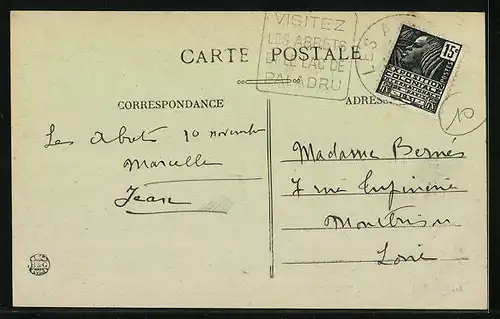 VISITEZ
LES ABRETS
ET LE LAC DE
PALADRU
LES A
15c
POSTES
EXPOSITION
CARTE POSTALE
CORRESPONDANCE
ADRESSE
10
Les Abrets 10 novembre
Marcelle
Jean
Madame Bernés
7 rue
Montbrison
Loire
B&G